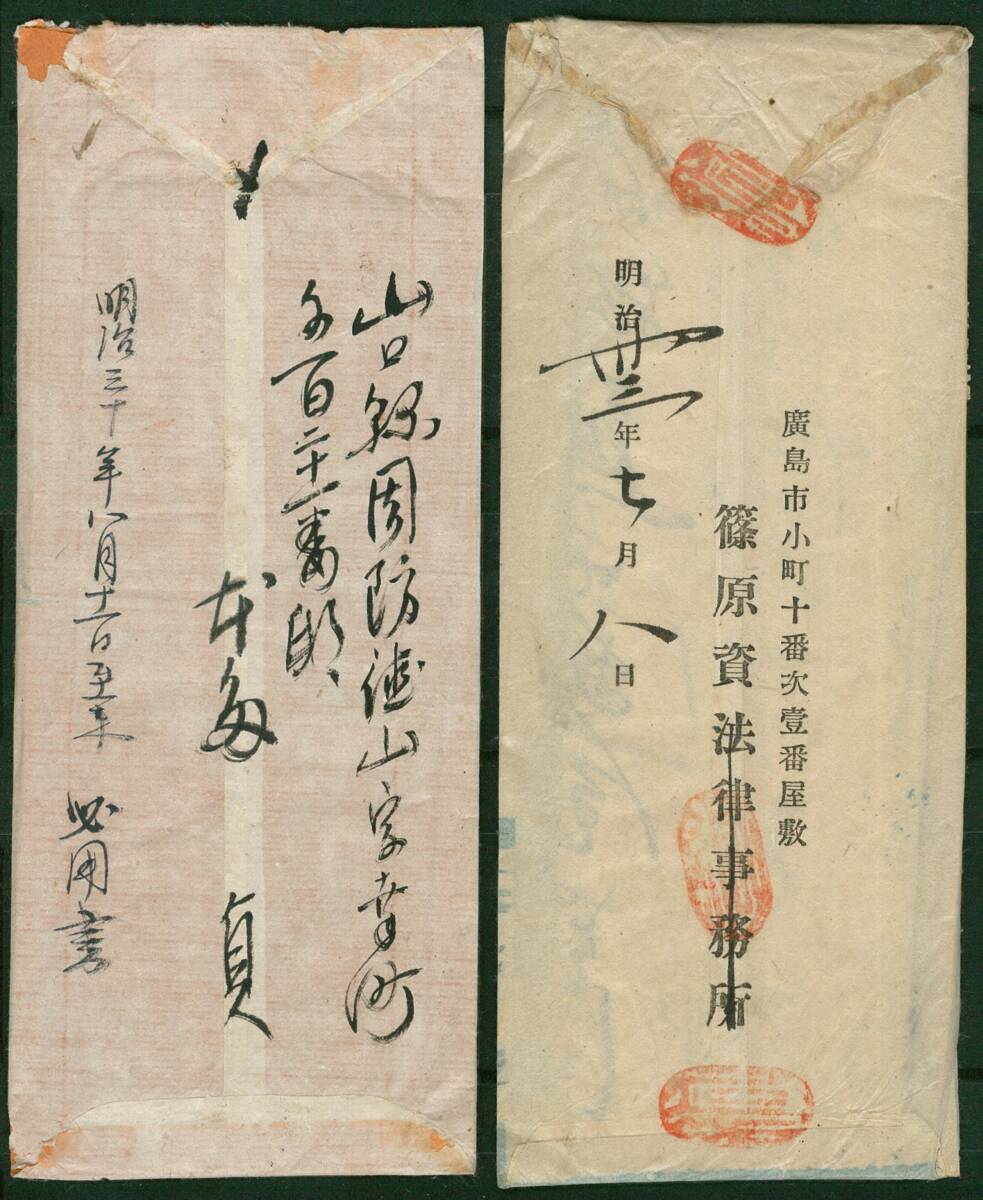 山口縣周防徳山字幸町
百二十一番邸
本多 貞
明治三十年八月十二日至来 必用書
廣島市小町十番次壹番屋敷
篠原資法律事務所
明治卅三年七月八日